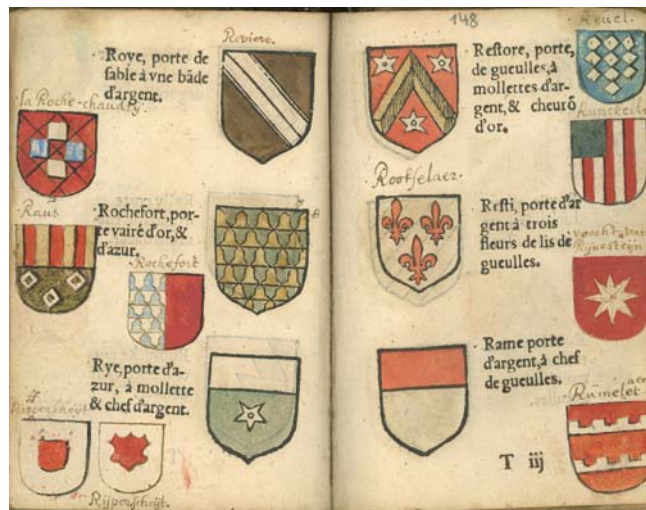 Roviere.
Roye, porte de
sable à vne bãde
d'argent.
la Roche-chaudry.
Raus
Rochefort, por-
te vairé d'or, &
d'azur.
Rochefort
Rye, porte d'a-
zur, à mollette
& chef d'argent.
Ripperscheijt
Rijperscheijt.
148
Reuel.
Restore, porte,
de gueulles, à
mollettes d'ar-
gent, & cheurõ
d'or.
Rootselaer.
Resti, porte d'ar
gent à trois
fleurs de lis de
gueulles.
Rijnesteijn
Rame porte
d'argent, à chef
de gueulles.
Rumelet
T iij